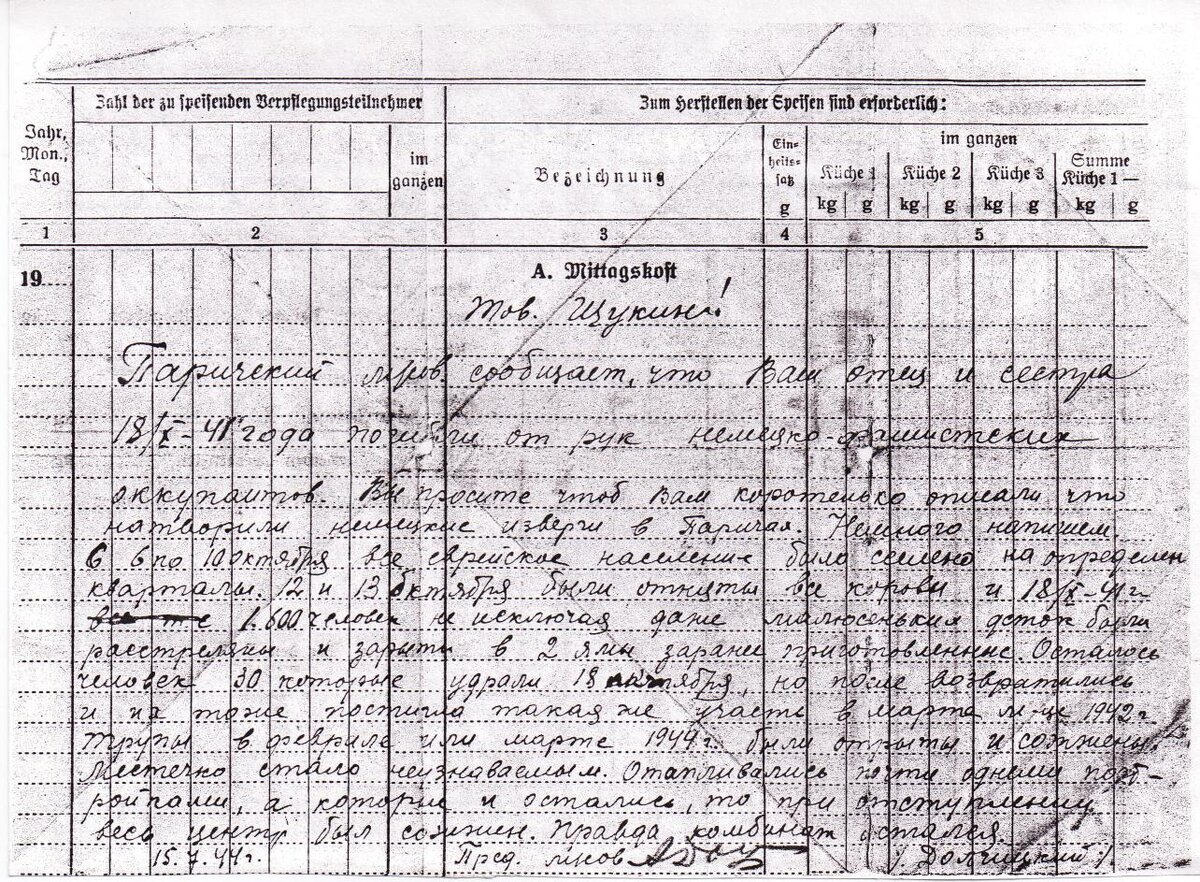 Zahl der zu speisenden Verpflegungsteilnehmer
Zum Herstellen der Speisen sind erforderlich:
Jahr, Mon., Tag
im ganzen
Bezeichnung
Ein-heits-satz g
im ganzen
Küche 1 Küche 2 Küche 3 Summe Küche 1 —
kg g kg g kg g kg g
1 2 3 4 5
19
A. Mittagskost
Тов. Щукин!
Паричский сообщает, что Ваш отец и сестра
18/X-41 года погибли от рук немецко-фашистских
оккупантов. Вы просите чтоб Вам коротенько описали что
натворили немецкие изверги в Паричах. Немного напишем.
С 6 по 10 октября все еврейское население было селено на определен
кварталы. 12 и 13 октября были отняты все коровы и 18/X-41 г.
1.600 человек не исключая даже малюсеньких деток были
расстреляны и зарыты в 2 ямы заранее приготовленные. Осталось
человек 30 которые удрали 18 октября, но после возвратились
и их тоже постигла такая же участь в марте м-це 1942 г.
Трупы в феврале или марте 1944 г. были открыты и сожжены.
Местечко стало неузнаваемым. Отапливались почти одними пост-
ройками, а которые и остались, то при отступлении
весь центр был сожжен. Правда комбинат остался.
15.7.44 г. Пред. /Долгицкий/.